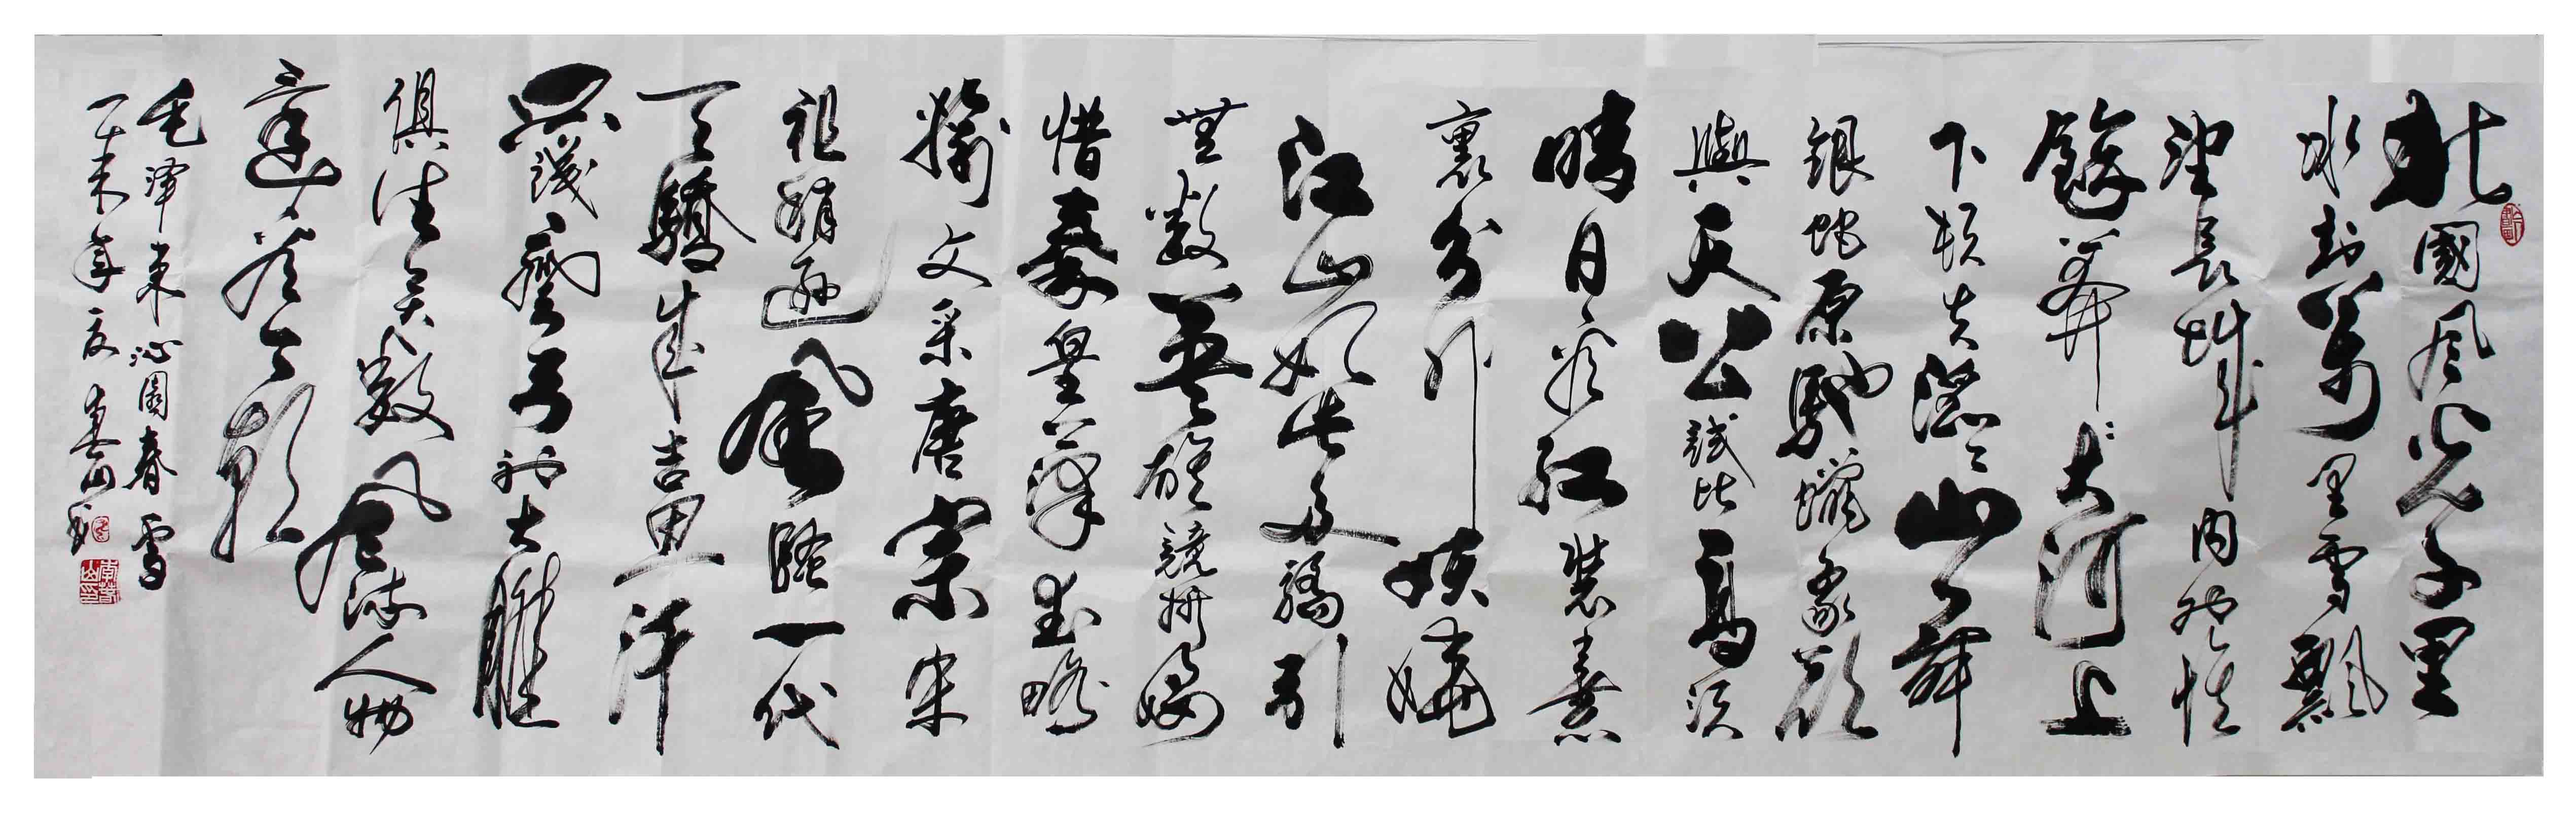 北國風光千里
冰封萬里雪飄
望長城內外惟
餘莽莽大河上
下頓失滔滔山舞
銀蛇原馳蠟象欲
與天公試比高須
晴日看紅裝素
裹分外妖嬈
江山如此多嬌引
無數英雄競折腰
惜秦皇漢武略
輸文采唐宗宋
祖稍遜風騷一代
天驕成吉思汗
只識彎弓射大雕
俱往矣數風流人物
還看今朝
毛澤東沁園春雪
未年夏山書